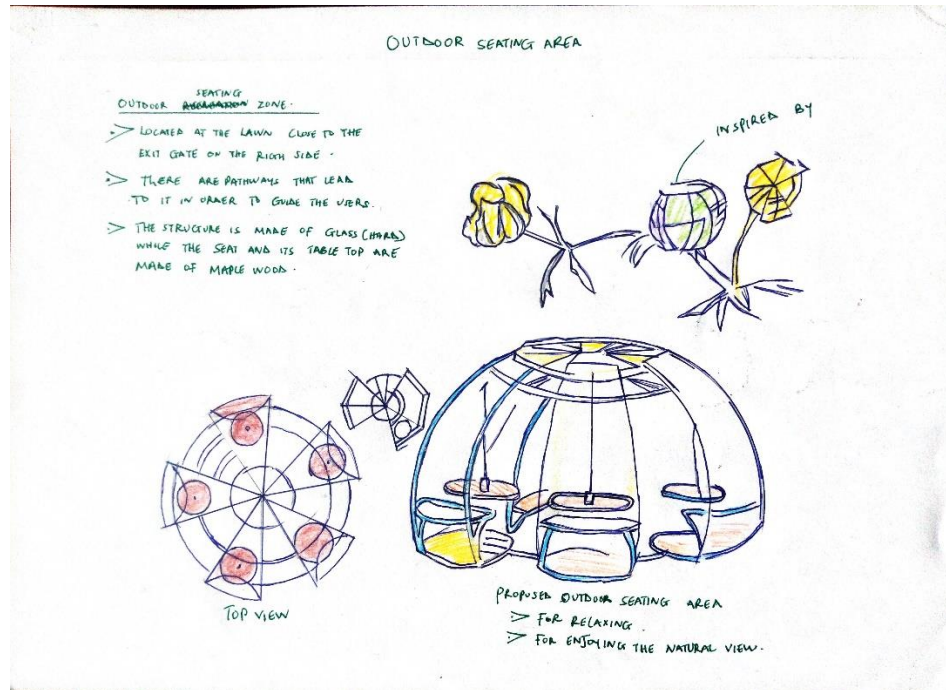 OUTDOOR SEATING AREA
SEATING
OUTDOOR ZONE.
LOCATED AT THE LAWN CLOSE TO THE
EXIT GATE ON THE RIGTH SIDE.
THERE ARE PATHWAYS THAT LEAD
TO IT IN ORDER TO GUIDE THE USERS.
THE STRUCTURE IS MADE OF GLASS (HARD)
WHILE THE SEAT AND ITS TABLE TOP ARE
MADE OF MAPLE WOOD.
INSPIRED BY
TOP VIEW
PROPOSED OUTDOOR SEATING AREA
FOR RELAXING.
FOR ENJOYING THE NATURAL VIEW.